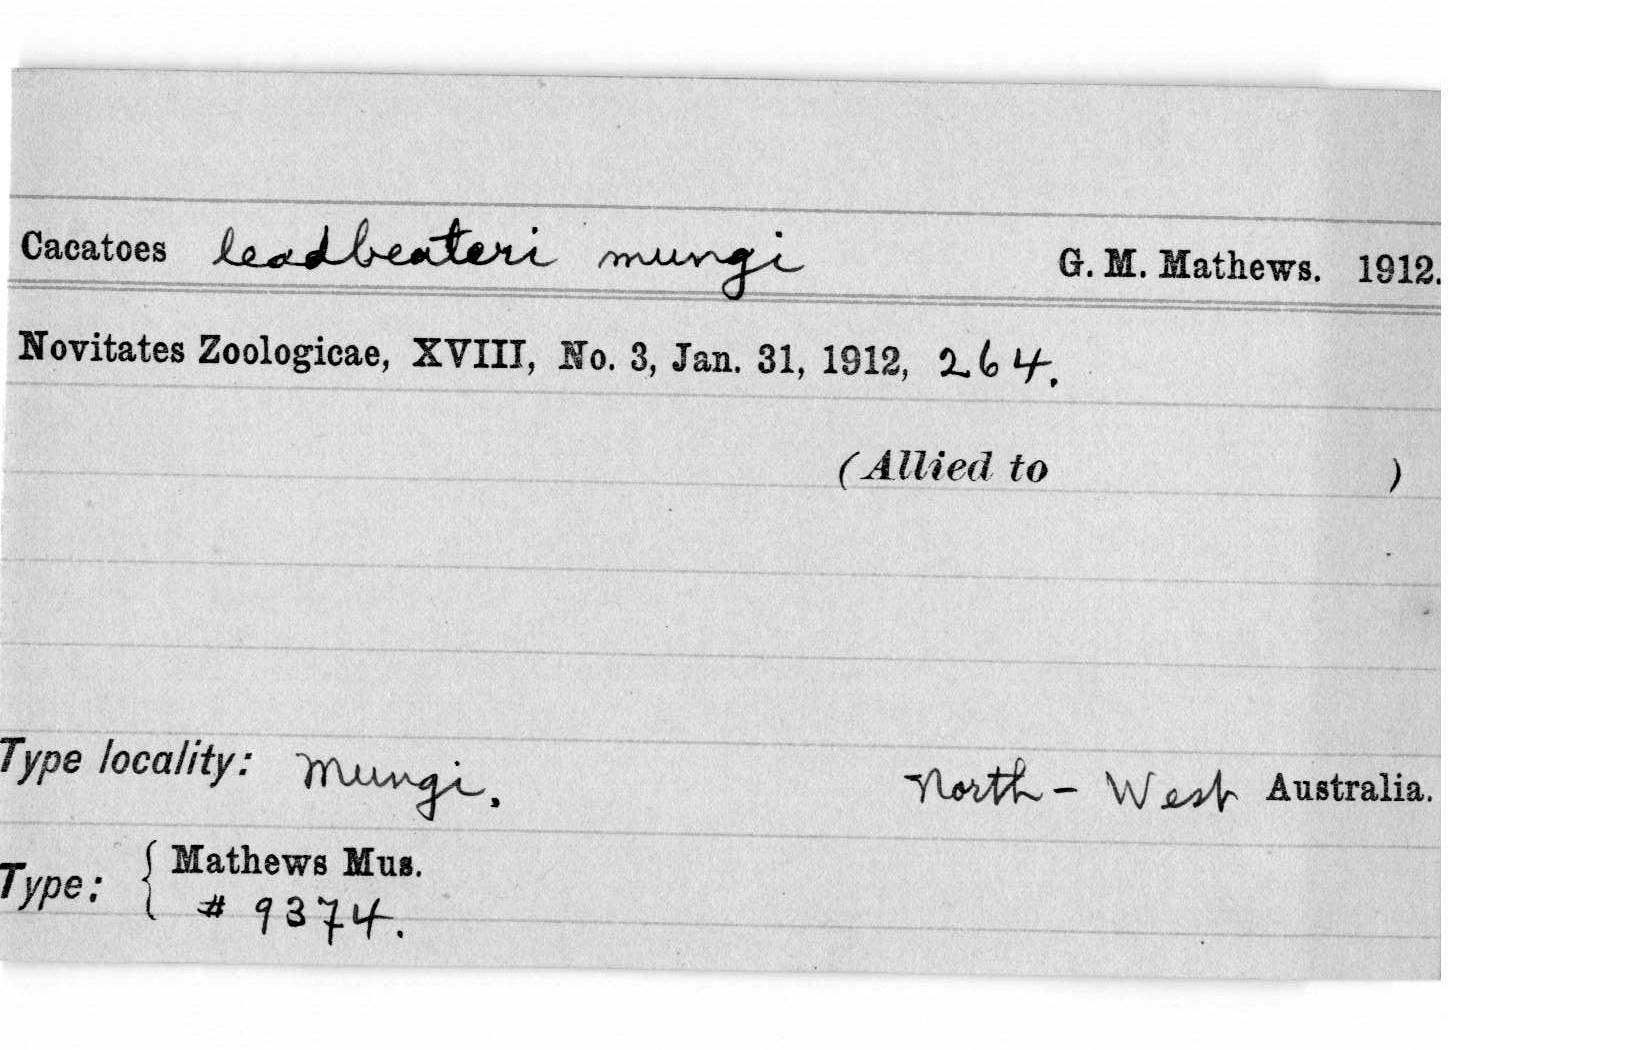 Cacatoes leadbeateri mungi G. M. Mathews. 1912.
Novitates Zoologicae, XVIII, No. 3, Jan. 31, 1912, 264.
(Allied to )
Type locality: Mungi. North-West Australia.
Type: { Mathews Mus.
# 9374.